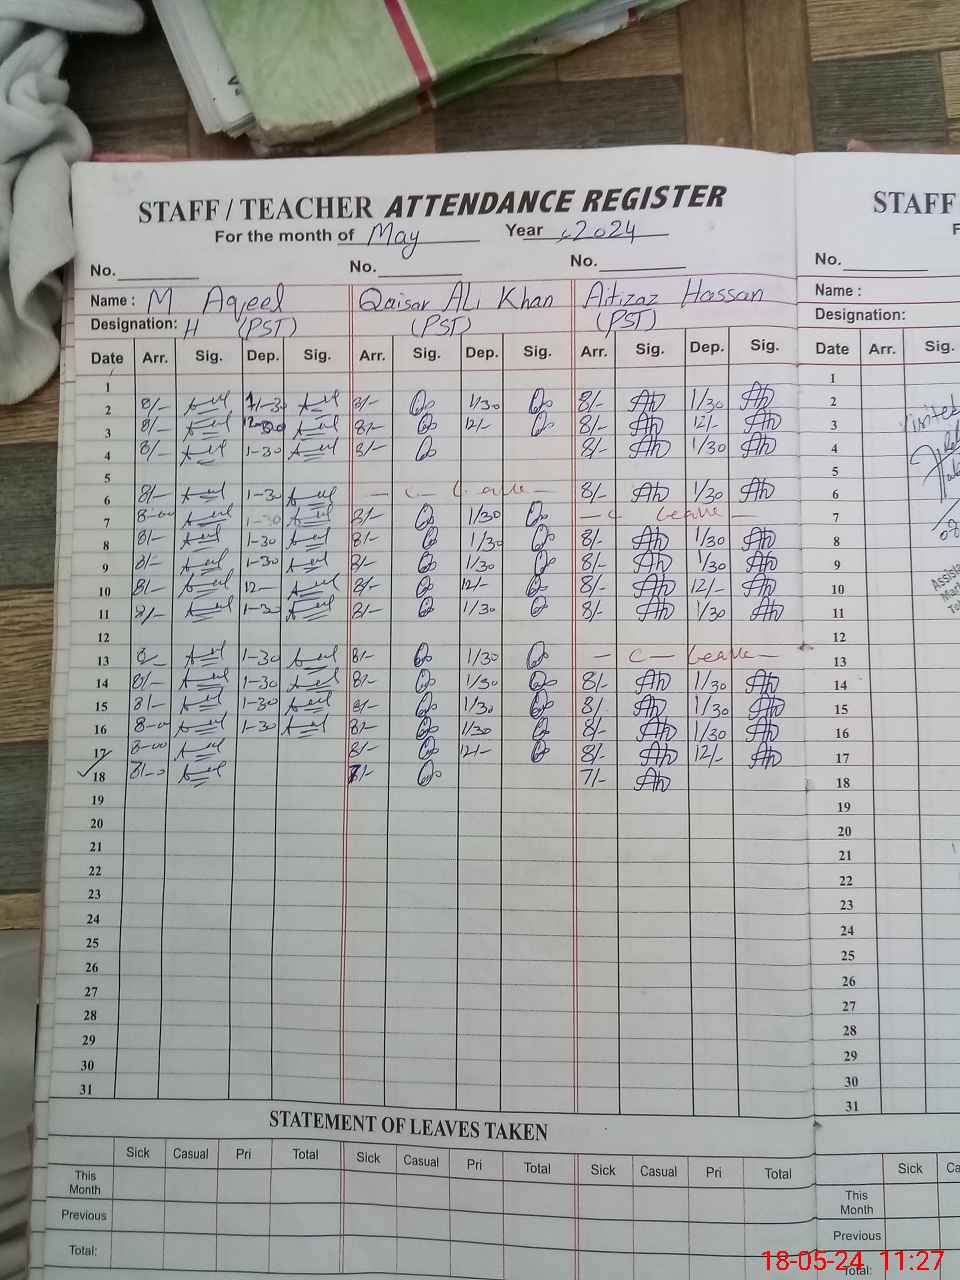 STAFF / TEACHER ATTENDANCE REGISTER
For the month of May Year 2024
No. No. No.
Name : M Aqeel Qaisar ALi Khan Aitizaz Hassan
Designation: H (PST) (PST) (PST)
Date Arr. Sig. Dep. Sig. Arr. Sig. Dep. Sig. Arr. Sig. Dep. Sig.
1
2 8/- 1-30 8/- 1/30 8/- 1/30
3 8/- 8/- 12/- 8/- 12/-
4 8/- 1-30 8/- 8/- 1/30
5
6 8/- 1-30 - C - Leave - 8/- 1/30
7 8-00 1-30 8/- 1/30 - C Leave -
8 8/- 1-30 8/- 1/30 8/- 1/30
9 8/- 1-30 8/- 1/30 8/- 1/30
10 8/- 12- 8/- 12/- 8/- 12/-
11 8/- 1-30 8/- 1/30 8/- 1/30
12
13 1-30 8/- 1/30 - C - Leave -
14 8/- 1-30 8/- 1/30 8/- 1/30
15 8/- 1-30 8/- 1/30 8/- 1/30
16 8-00 1-30 8/- 1/30 8/- 1/30
17 8-00 8/- 12/- 8/- 12/-
18 8/- 7/-
19
20
21
22
23
24
25
26
27
28
29
30
31
STATEMENT OF LEAVES TAKEN
Sick Casual Pri Total Sick Casual Pri Total Sick Casual Pri Total
This Month
Previous
Total:
STAFF
F
No.
Name :
Designation:
Date Arr. Sig.
1
2
3 visited
4
5
6
7
8
9
10
11
12
13
14
15
16
17
18
19
20
21
22
23
24
25
26
27
28
29
30
31
Sick Ca
This Month
Previous
Total:
18-05-24 11:27